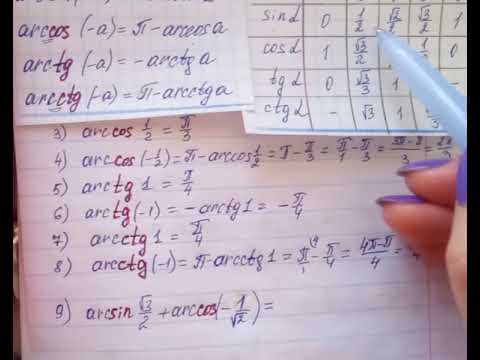 arccos(-a)=π-arccosa
arctg(-a)=-arctga
arcctg(-a)=π-arcctga
sinα 0 1/2 √2/2 √3/2 1
cosα 1 √3/2 1/2 0
tgα 0 √3/3 1
ctgα - √3 1
3) arccos 1/2 = π/3
4) arccos(-1/2)=π-arccos 1/2 = π - π/3 = π/1 - π/3 = 3π-π/3 = 2π/3
5) arctg 1 = π/4
6) arctg(-1) = -arctg 1 = -π/4
7) arcctg 1 = π/4
8) arcctg(-1) = π-arcctg 1 = π/1 - π/4 = 4π-π/4 =
9) arcsin √3/2 + arccos(-1/√2) =